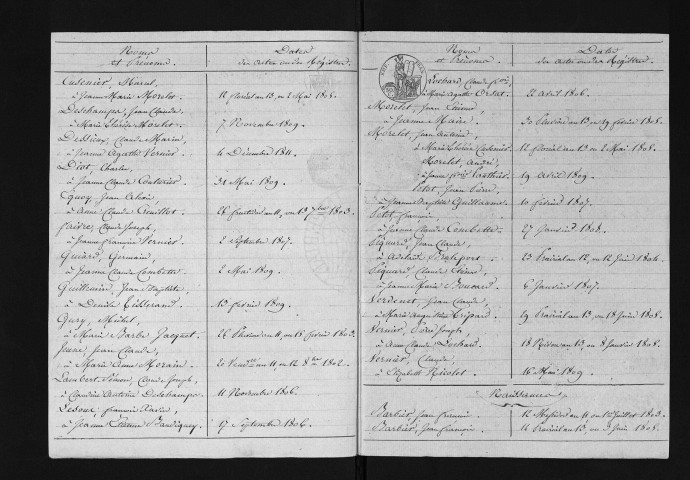 Noms et Prénoms
Dates des actes ou des Registres.
Cusenier, Marat,
à Jeanne Marie Morelot. 12 floréal an 13, ou 2 Mai 1805.
Deschamps, Jean Claude,
à Marie Thérèse 7 Novembre 1809.
Claude Marin,
à Jeanne Agathe Vernier. 4 Décembre 1811.
Diot, Charles,
à Jeanne Claude Couturier. 31 Mai 1809.
Jean
à Anne Claude 26 fructidor an 11, ou 13 7bre 1803.
Faivre, Claude Joseph,
à Jeanne Françoise Vernier. 2 Septembre 1807.
Guiard, Germain,
à Jeanne Claude Combette. 2 Mai 1809.
Guillemin, Jean Baptiste,
à Denise Tisserand. 13 février 1809.
Gury, Michel,
à Marie Barbe Jacquet. 26 Pluviose an 11, ou 15 février 1803.
Jeune, Jean Claude,
à Marie Anne 20 Vendre an 11, ou 12 8bre 1802.
Lambert Simon, Claude Joseph,
à Claudine Antoine Deschamps. 11 Novembre 1806.
Ledoux, François Xavier,
à Jeanne Etienne Baudiquey. 17 Septembre 1806.
Noms et Prénoms
Dates des actes ou des Registres.
Lochard, Claude
à Marie Agathe 22 Avril 1806.
Morelot, Jean
à Jeanne Maire 30 Pluviose an 13, ou 19 février 1805.
Morelot, Jean Antoine,
à Marie Thérèse Cusenier. 12 floréal an 13 ou 2 Mai 1805.
Morelot, André,
à Jeanne 19 Avril 1809.
Petit, Jean Pierre,
à Jeanne Baptiste Guillaume. 10 février 1807.
Petit, François,
à Jeanne Claude Combette. 27 Janvier 1808.
Piquard, Jean Claude,
à Adélaïde 23 Prairial an 12, ou 12 Juin 1804.
Piquard, Claude Etienne,
à Jeanne Marie 6 Janvier 1807.
Verdenet, Jean Claude,
à Marie 29 Prairial an 13, ou 18 Juin 1805.
Vernier, Joseph,
à Anne Claude Lochard. 18 Nivose an 13, ou 8 Janvier 1805.
Vernier, Claude,
à Elizabeth Nicolot. 16 Mai 1809.
Naissances,
Barbier, Jean 12 Messidor an 11 ou 1er Juillet 1803.
Barbier, Jean François. 14 Prairial an 13, ou 3 Juin 1805.